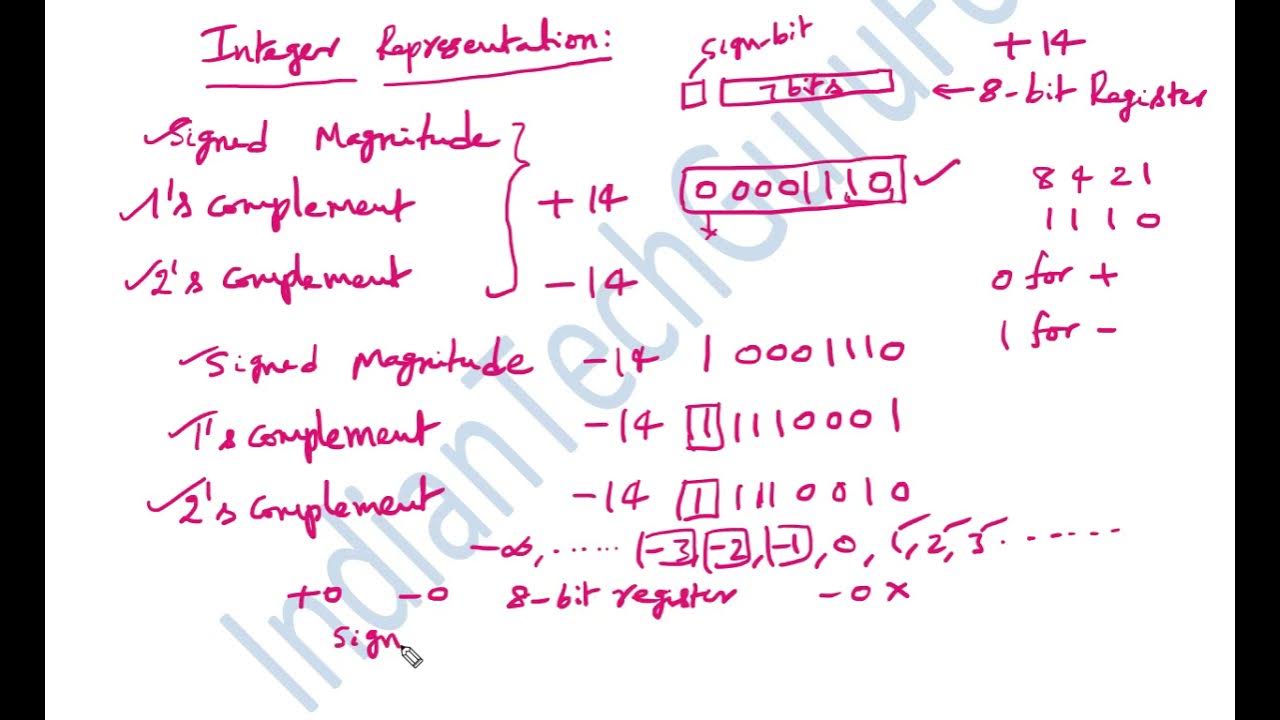 Integer Representation:
sign-bit
7 bits
+14
← 8-bit Register
Signed Magnitude
1's complement
2's complement
+14
-14
0 0001110
8 4 2 1
1 1 1 0
0 for +
1 for -
Signed Magnitude -14 1 0001110
1's complement -14 1 1110001
2's complement -14 1 1110010
-∞, ...... -3, -2, -1, 0, 1, 2, 3 ......
+0 -0 8-bit register -0 ×
sign
IndianTechGuruFo